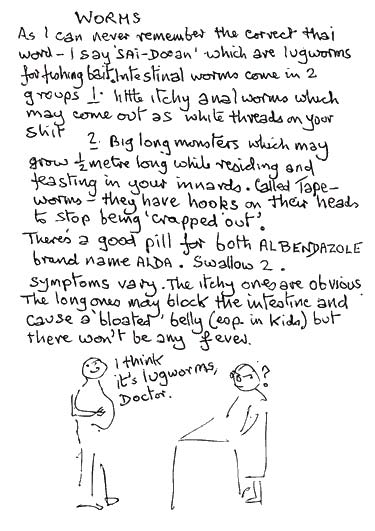 WORMS
As I can never remember the correct thai
word – I say 'SAi-Doean' which are lugworms
for fishing bait. Intestinal worms come in 2
groups 1. little itchy anal worms which
may come out as white threads on your
shit
2. Big long monsters which may
grow ½ metre long while residing and
feasting in your innards. Called Tape-
worms – they have hooks on their heads
to stop being 'crapped out'.
There's a good pill for both ALBENDAZOLE
brand name ALDA. Swallow 2.
symptoms vary. The itchy ones are obvious
The long ones may block the intestine and
cause a 'bloated' belly (esp in kids) but
there won't be any fever.
I think
it's lugworms,
Doctor.
?